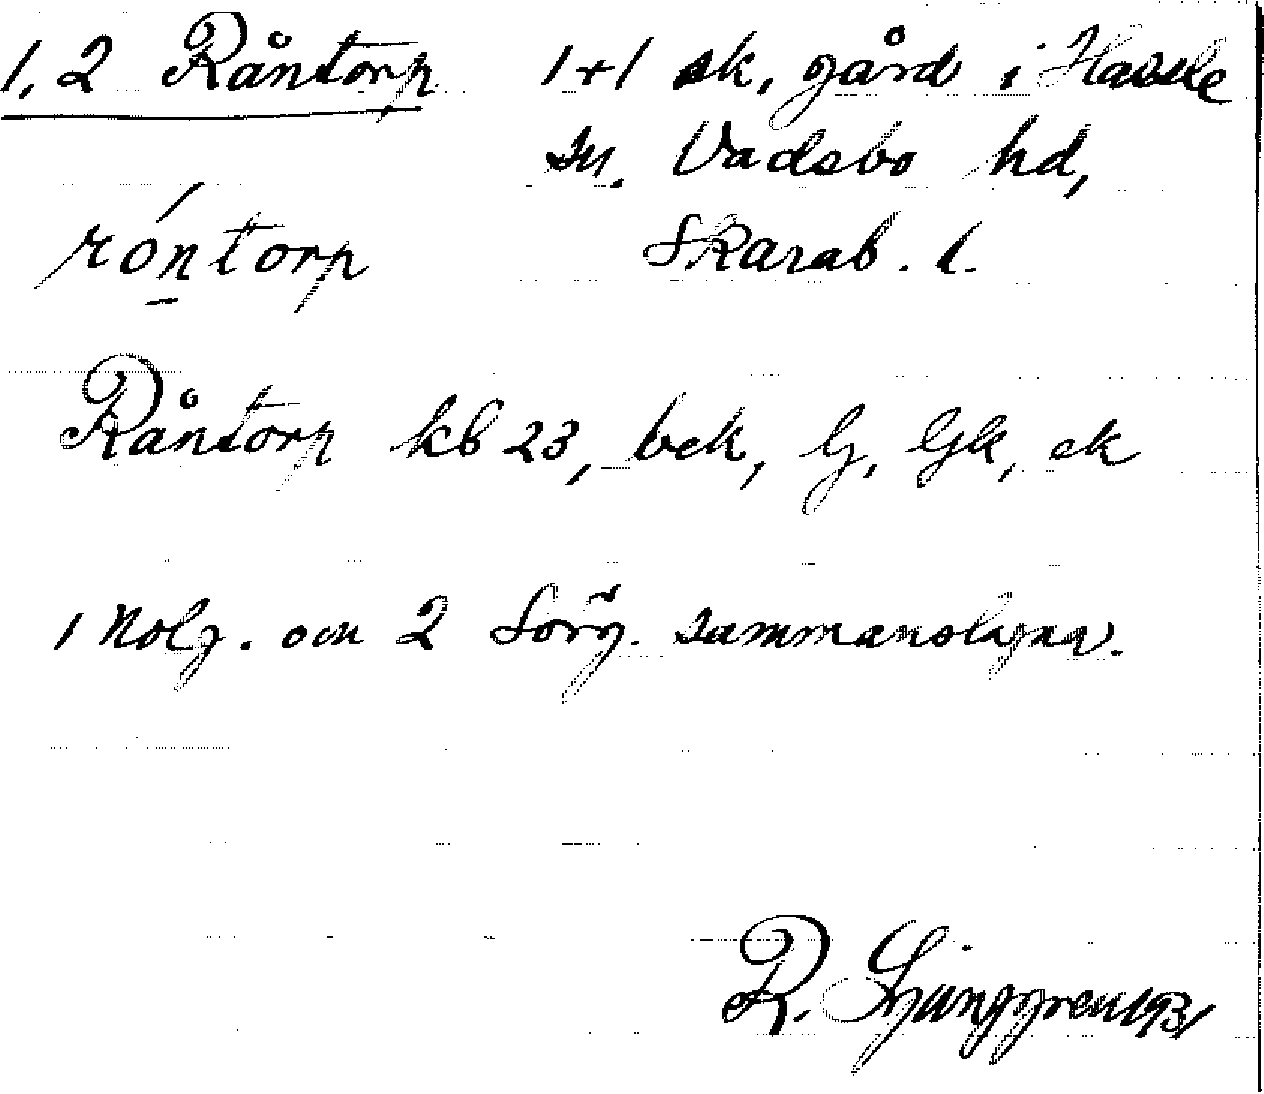 1, 2 Råntorp 1+1 sk, gård i Hassle
sn. Vadsbo hd,
róntorp Skarab. l.
Råntorp kb 23, bek, G, Gk, ek
1 Nolg. och 2 Sörg. sammanslagna.
R. Ljunggren 1931